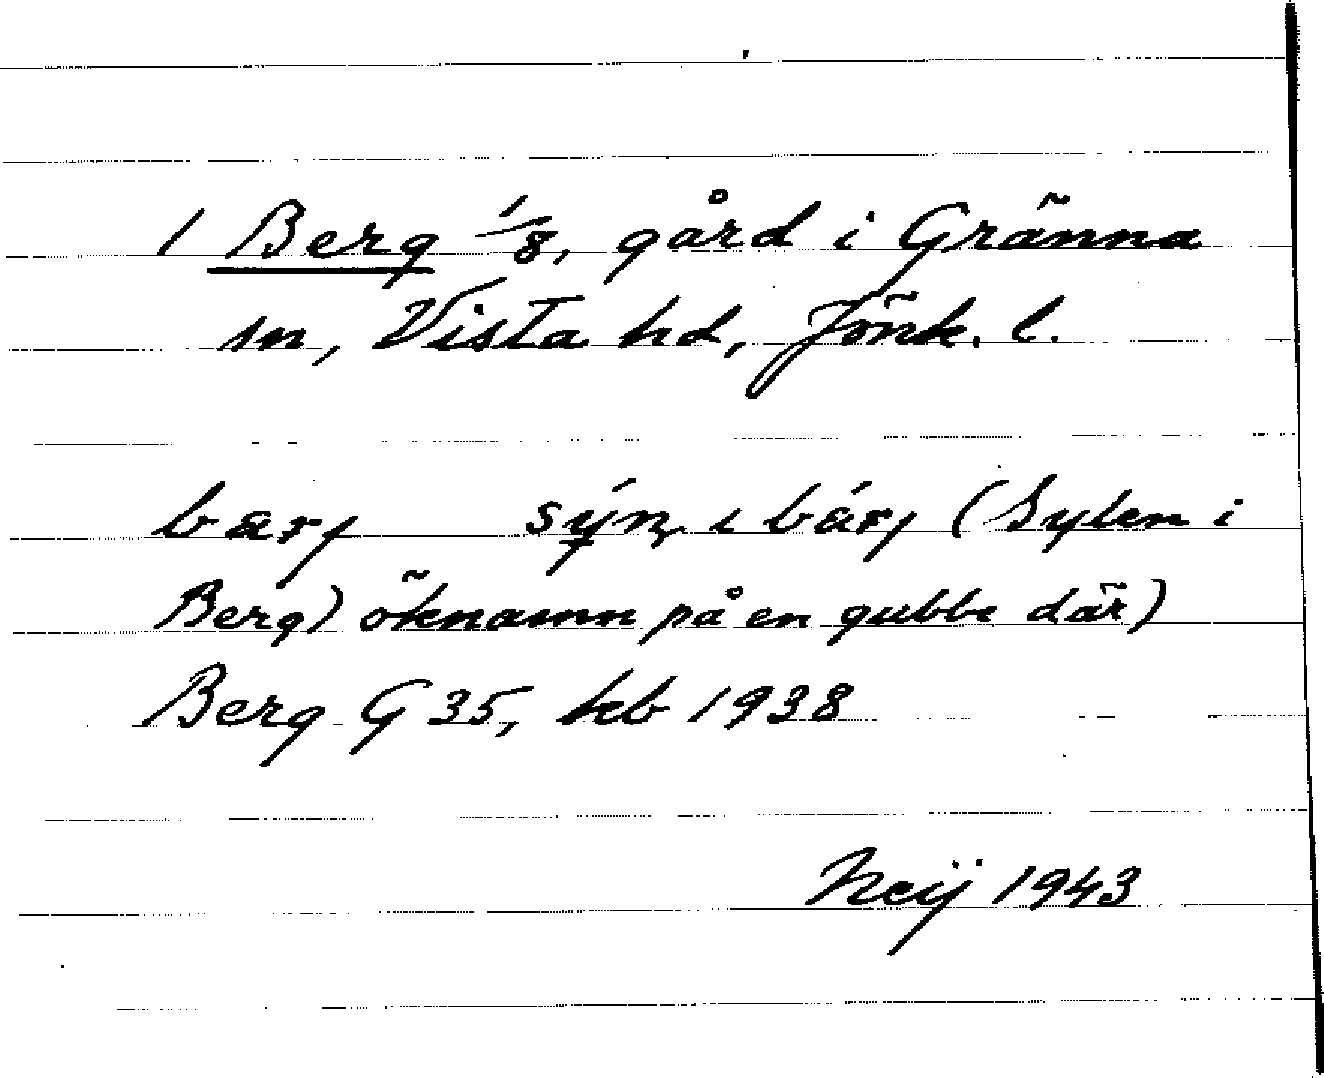 1 Berg 1/8, gård i Gränna
sn, Vista hd, Jönk. l.
bærj sýn ɩ bǽrj (Sylen i
Berg) öknamn på en gubbe där)
Berg G 35, kb 1938
Neij 1943